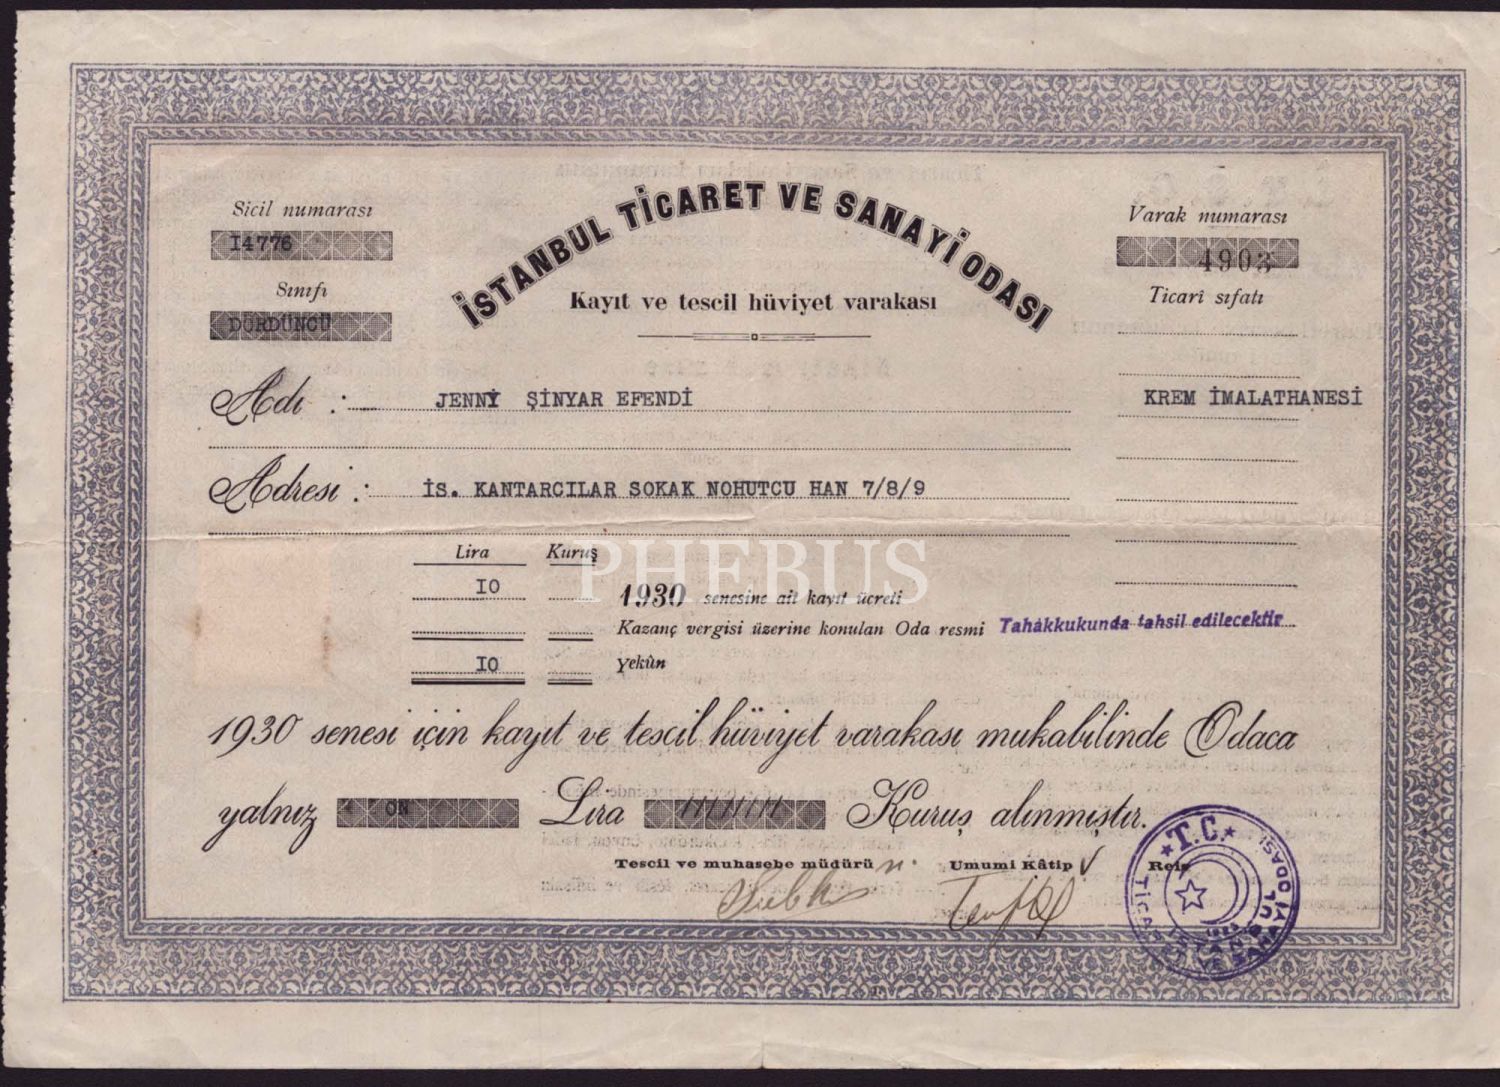 İSTANBUL TİCARET VE SANAYİ ODASI
Kayıt ve tescil hüviyet varakası
Sicil numarası
I4776
Sınıfı
DÖRDÜNCÜ
Varak numarası
4903
Ticarî sıfatı
KREM İMALATHANESİ
Adı : JENNİ ŞİNYAR EFENDİ
Adresi : İS. KANTARCILAR SOKAK NOHUTCU HAN 7/8/9
PHEBUS
Lira Kuruş
IO 1930 senesine ait kayıt ücreti
Kazanç vergisi üzerine konulan Oda resmi Tahakkukunda tahsil edilecektir
IO Yekûn
1930 senesi için kayıt ve tescil hüviyet varakası mukabilinde Odaca
yalnız ON Lira Kuruş alınmıştır.
Tescil ve muhasebe müdürü Umumi Kâtip Reis
T.C.
İSTANBUL
TİCARET VE SANAYİ ODASI